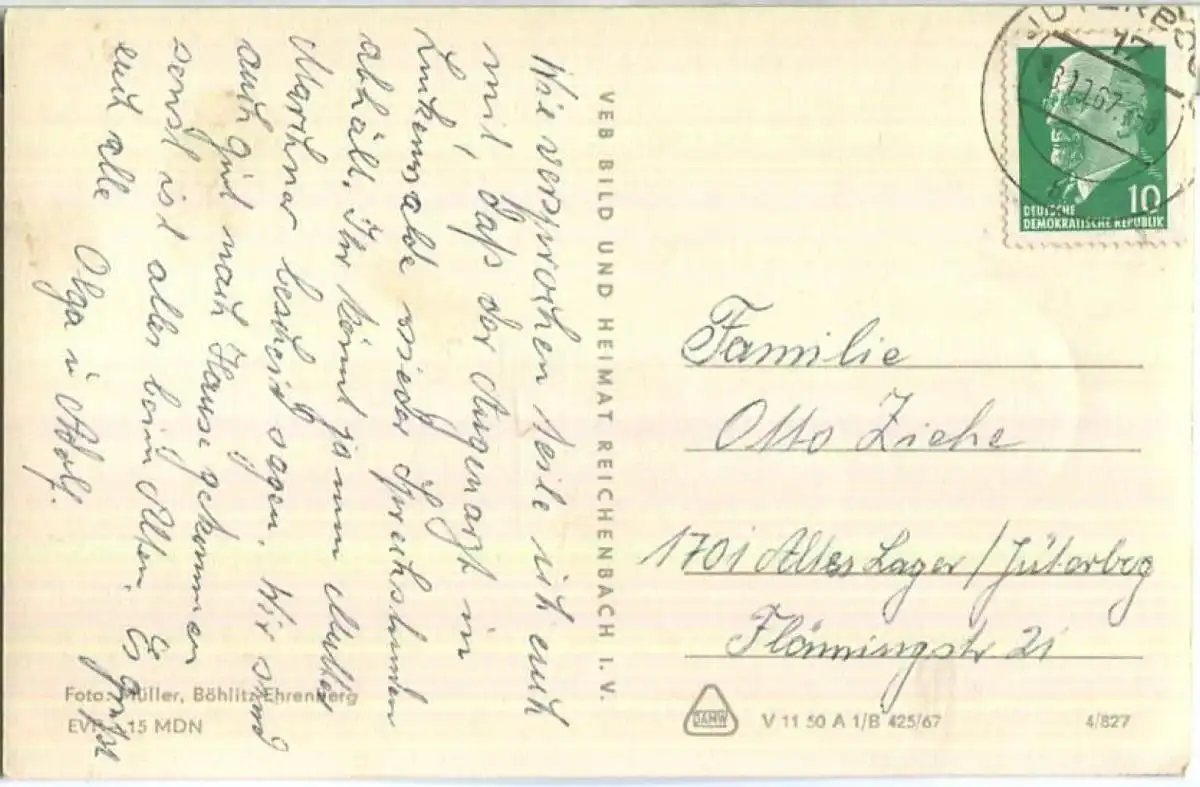 Wie versprochen teile ich euch
mit, daß der Augenarzt in
Lukenwalde wieder Sprechstunden
abhält. Ihr könnt ja nun Mutter
bescheid sagen. Wir sind
auch gut nach Hause gekommen
sonst ist alles beim Alten. Es grüßt
euch alle
Olga u Adolf.
VEB BILD UND HEIMAT REICHENBACH I. V.
Foto: Müller, Böhlitz-Ehrenberg
EVP 15 MDN
JÜTERBOG
17
10
DEUTSCHE
DEMOKRATISCHE REPUBLIK
Familie
Otto Ziehe
1701 Altes Lager / Jüterbog
Flämingstr 21
DAMW
V 11 50 A 1/B 425/67
4/827